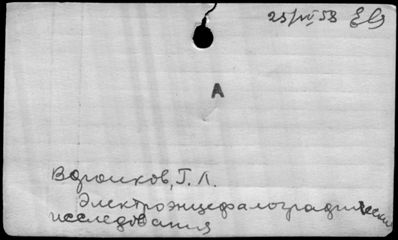 23/IV 58
A
Воронков, Г. Л.
Электроэнцефалографические
исследования